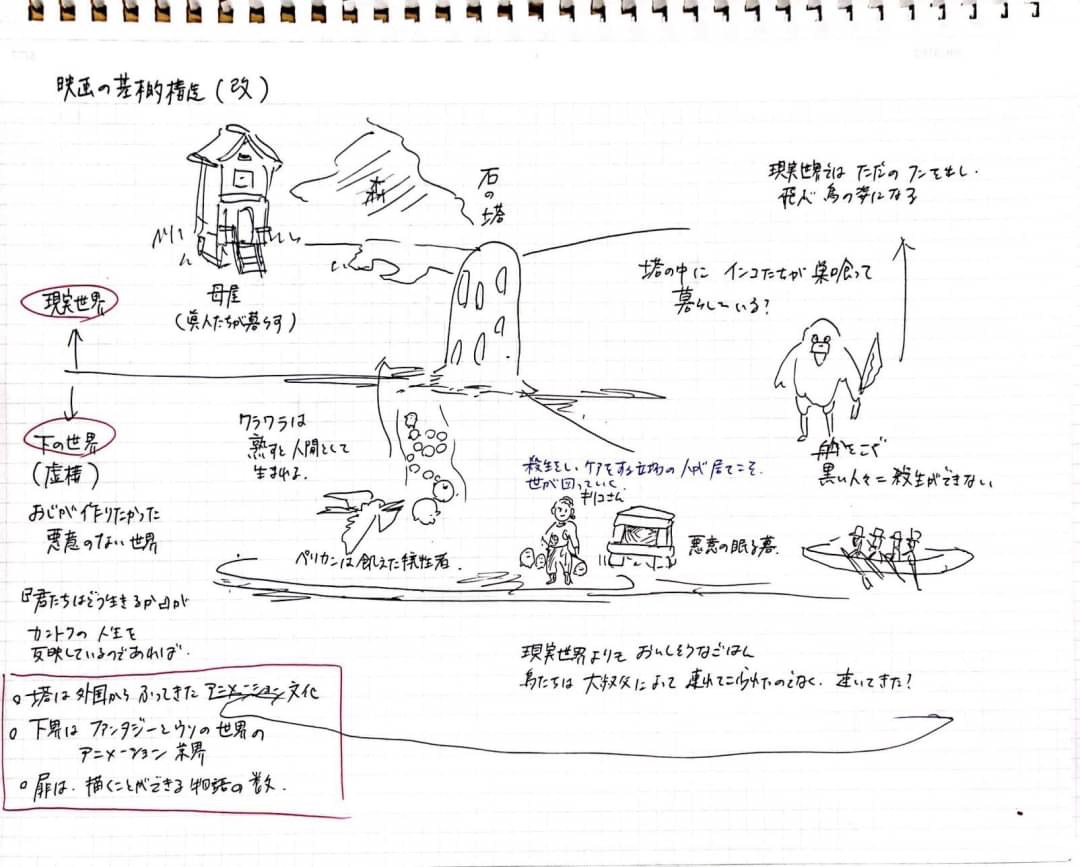 映画の基本的構造(改)
森
石の塔
現実世界ではただのフンを出し、
飛ぶ鳥の姿になる
塔の中に インコたちが 巣喰って
暮らしている?
母屋
(眞人たちが暮らす)
現実世界
下の世界
(虚構)
おじが作りたかった
悪意のない世界
ワラワラは
熟すと人間として
生まれる
殺生をし、ケアをする立場の人が居てこそ、
世が回っていく
キリコさん
船をこぐ
黒い人々=殺生ができない
ペリカンは飢えた犠牲者.
悪意の眠る墓.
『君たちはどう生きるか』が
カントクの人生を
反映しているのであれば.
○塔は外国からふってきた アニメーション 文化
○下界は ファンタジーとウソの世界の
アニメーション 業界
○扉は、描くことができる物語の数.
現実世界よりも おいしそうなごはん
鳥たちは 大叔父によって 連れてこられたのでなく、逃いてきた?